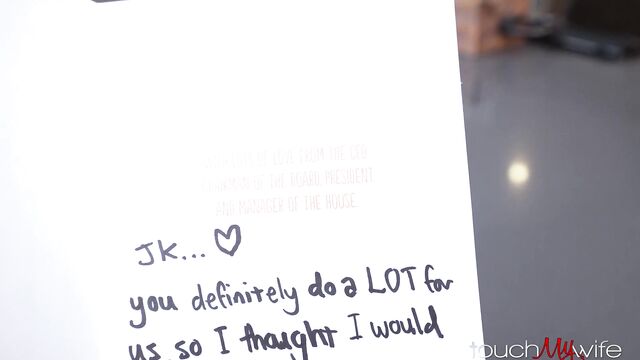 LOTS OF LOVE FROM THE CEO
CHAIRMAN OF THE BOARD, PRESIDENT
AND MANAGER OF THE HOUSE
JK... ♡
you definitely do a LOT for
us, so I thought I would
touchMywife